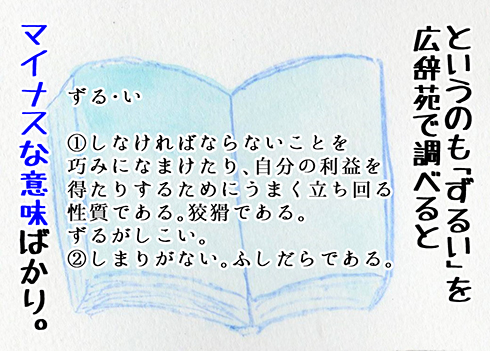 というのも「ずるい」を
広辞苑で調べると
ずる・い
①しなければならないことを
巧みになまけたり、自分の利益を
得たりするためにうまく立ち回る
性質である。狡猾である。
ずるがしこい。
②しまりがない。ふしだらである。
マイナスな意味ばかり。